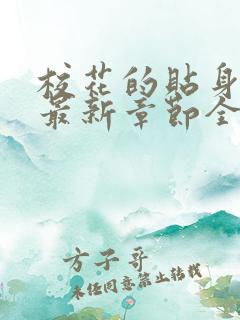 校花的贴身
最新章节全
方子哥
未经同意禁止转载